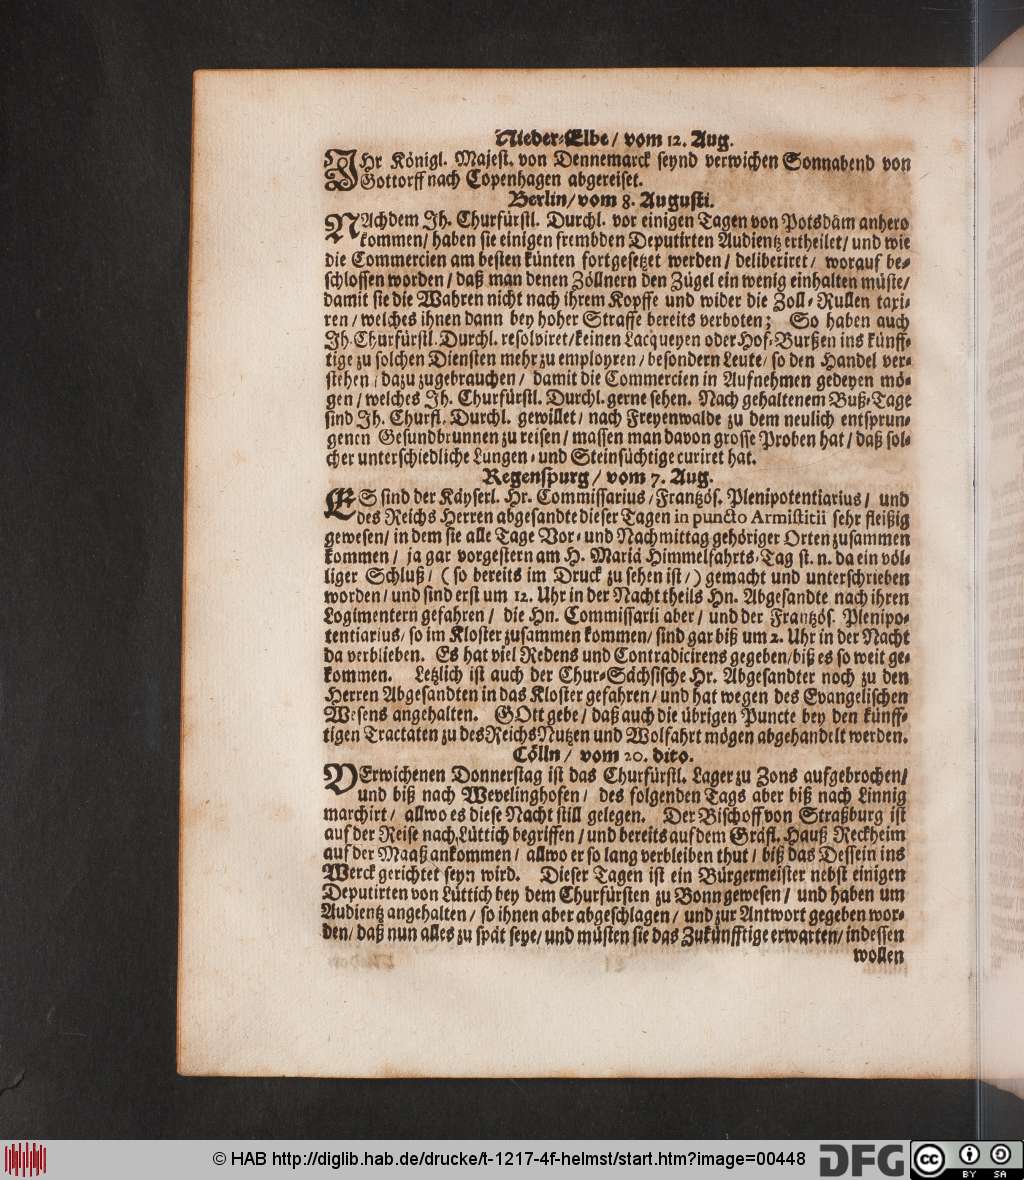 Nieder-Elbe / vom 12. Aug.
IHr Königl. Majest. von Dennemarck seynd verwichen Sonnabend von
Gottorff nach Copenhagen abgereiset.
Berlin / vom 8. Augusti.
NAchdem Ih. Churfürstl. Durchl. vor einigen Tagen von Potsdäm anhero
kommen / haben sie einigen frembden Deputirten Audientz ertheilet / und wie
die Commercien am besten künten fortgesetzet werden / deliberiret / worauf be-
schlossen worden / daß man denen Zöllnern den Zügel ein wenig einhalten müste /
damit sie die Wahren nicht nach ihrem Kopffe und wider die Zoll-Rullen taxi-
ren / welches ihnen dann bey hoher Straffe bereits verboten; So haben auch
Ih. Churfürstl. Durchl. resolviret / keinen Lacqueyen oder Hof-Burßen ins künff-
tige zu solchen Diensten mehr zu employren / besondern Leute / so den Handel ver-
stehen / dazu zugebrauchen / damit die Commercien in Aufnehmen gedeyen mö-
gen / welches Ih. Churfürstl. Durchl. gerne sehen. Nach gehaltenem Buß-Tage
sind Ih. Churfl. Durchl. gewillet / nach Freyenwalde zu dem neulich entsprun-
genen Gesundbrunnen zu reisen / massen man davon grosse Proben hat / daß sol-
cher unterschiedliche Lungen- und Steinsüchtige curiret hat.
Regenspurg / vom 7. Aug.
ES sind der Käyserl. Hr. Commissarius / Frantzös. Plenipotentiarius / und
des Reichs Herren abgesandte dieser Tagen in puncto Armistitii sehr fleißig
gewesen / in dem sie alle Tage Vor- und Nachmittag gehöriger Orten zusammen
kommen / ja gar vorgestern am H. Mariä Himmelfahrts-Tag st. n. da ein völ-
liger Schluß / ( so bereits im Druck zu sehen ist / ) gemacht und unterschrieben
worden / und sind erst um 12. Uhr in der Nacht theils Hn. Abgesandte nach ihren
Logimentern gefahren / die Hn. Commissarii aber / und der Frantzös. Plenipo-
tentiarius / so im Kloster zusammen kommen / sind gar biß um 2. Uhr in der Nacht
da verblieben. Es hat viel Redens und Contradicirens gegeben / biß es so weit ge-
kommen. Letzlich ist auch der Chur-Sächsische Hr. Abgesandter noch zu den
Herren Abgesandten in das Kloster gefahren / und hat wegen des Evangelischen
Wesens angehalten. GOtt gebe / daß auch die übrigen Puncte bey den künff-
tigen Tractaten zu des Reichs Nutzen und Wolfahrt mögen abgehandelt werden.
Cölln / vom 20. dito.
VErwichenen Donnerstag ist das Churfürstl. Lager zu Zons aufgebrochen /
und biß nach Wevelinghofen / des folgenden Tags aber biß nach Linnig
marchirt / allwo es diese Nacht still gelegen. Der Bischoff von Straßburg ist
auf der Reise nach Lüttich begriffen / und bereits auf dem Gräfl. Hauß Reckheim
auf der Maaß ankommen / allwo er so lang verbleiben thut / biß das Dessein ins
Werck gerichtet seyn wird. Dieser Tagen ist ein Bürgermeister nebst einigen
Deputirten von Lüttich bey dem Churfürsten zu Bonn gewesen / und haben um
Audientz angehalten / so ihnen aber abgeschlagen / und zur Antwort gegeben wor-
den / daß nun alles zu spät seye / und müsten sie das Zukünfftige erwarten / indessen
wollen
© HAB http://diglib.hab.de/drucke/t-1217-4f-helmst/start.htm?image=00448
DFG
cc BY SA